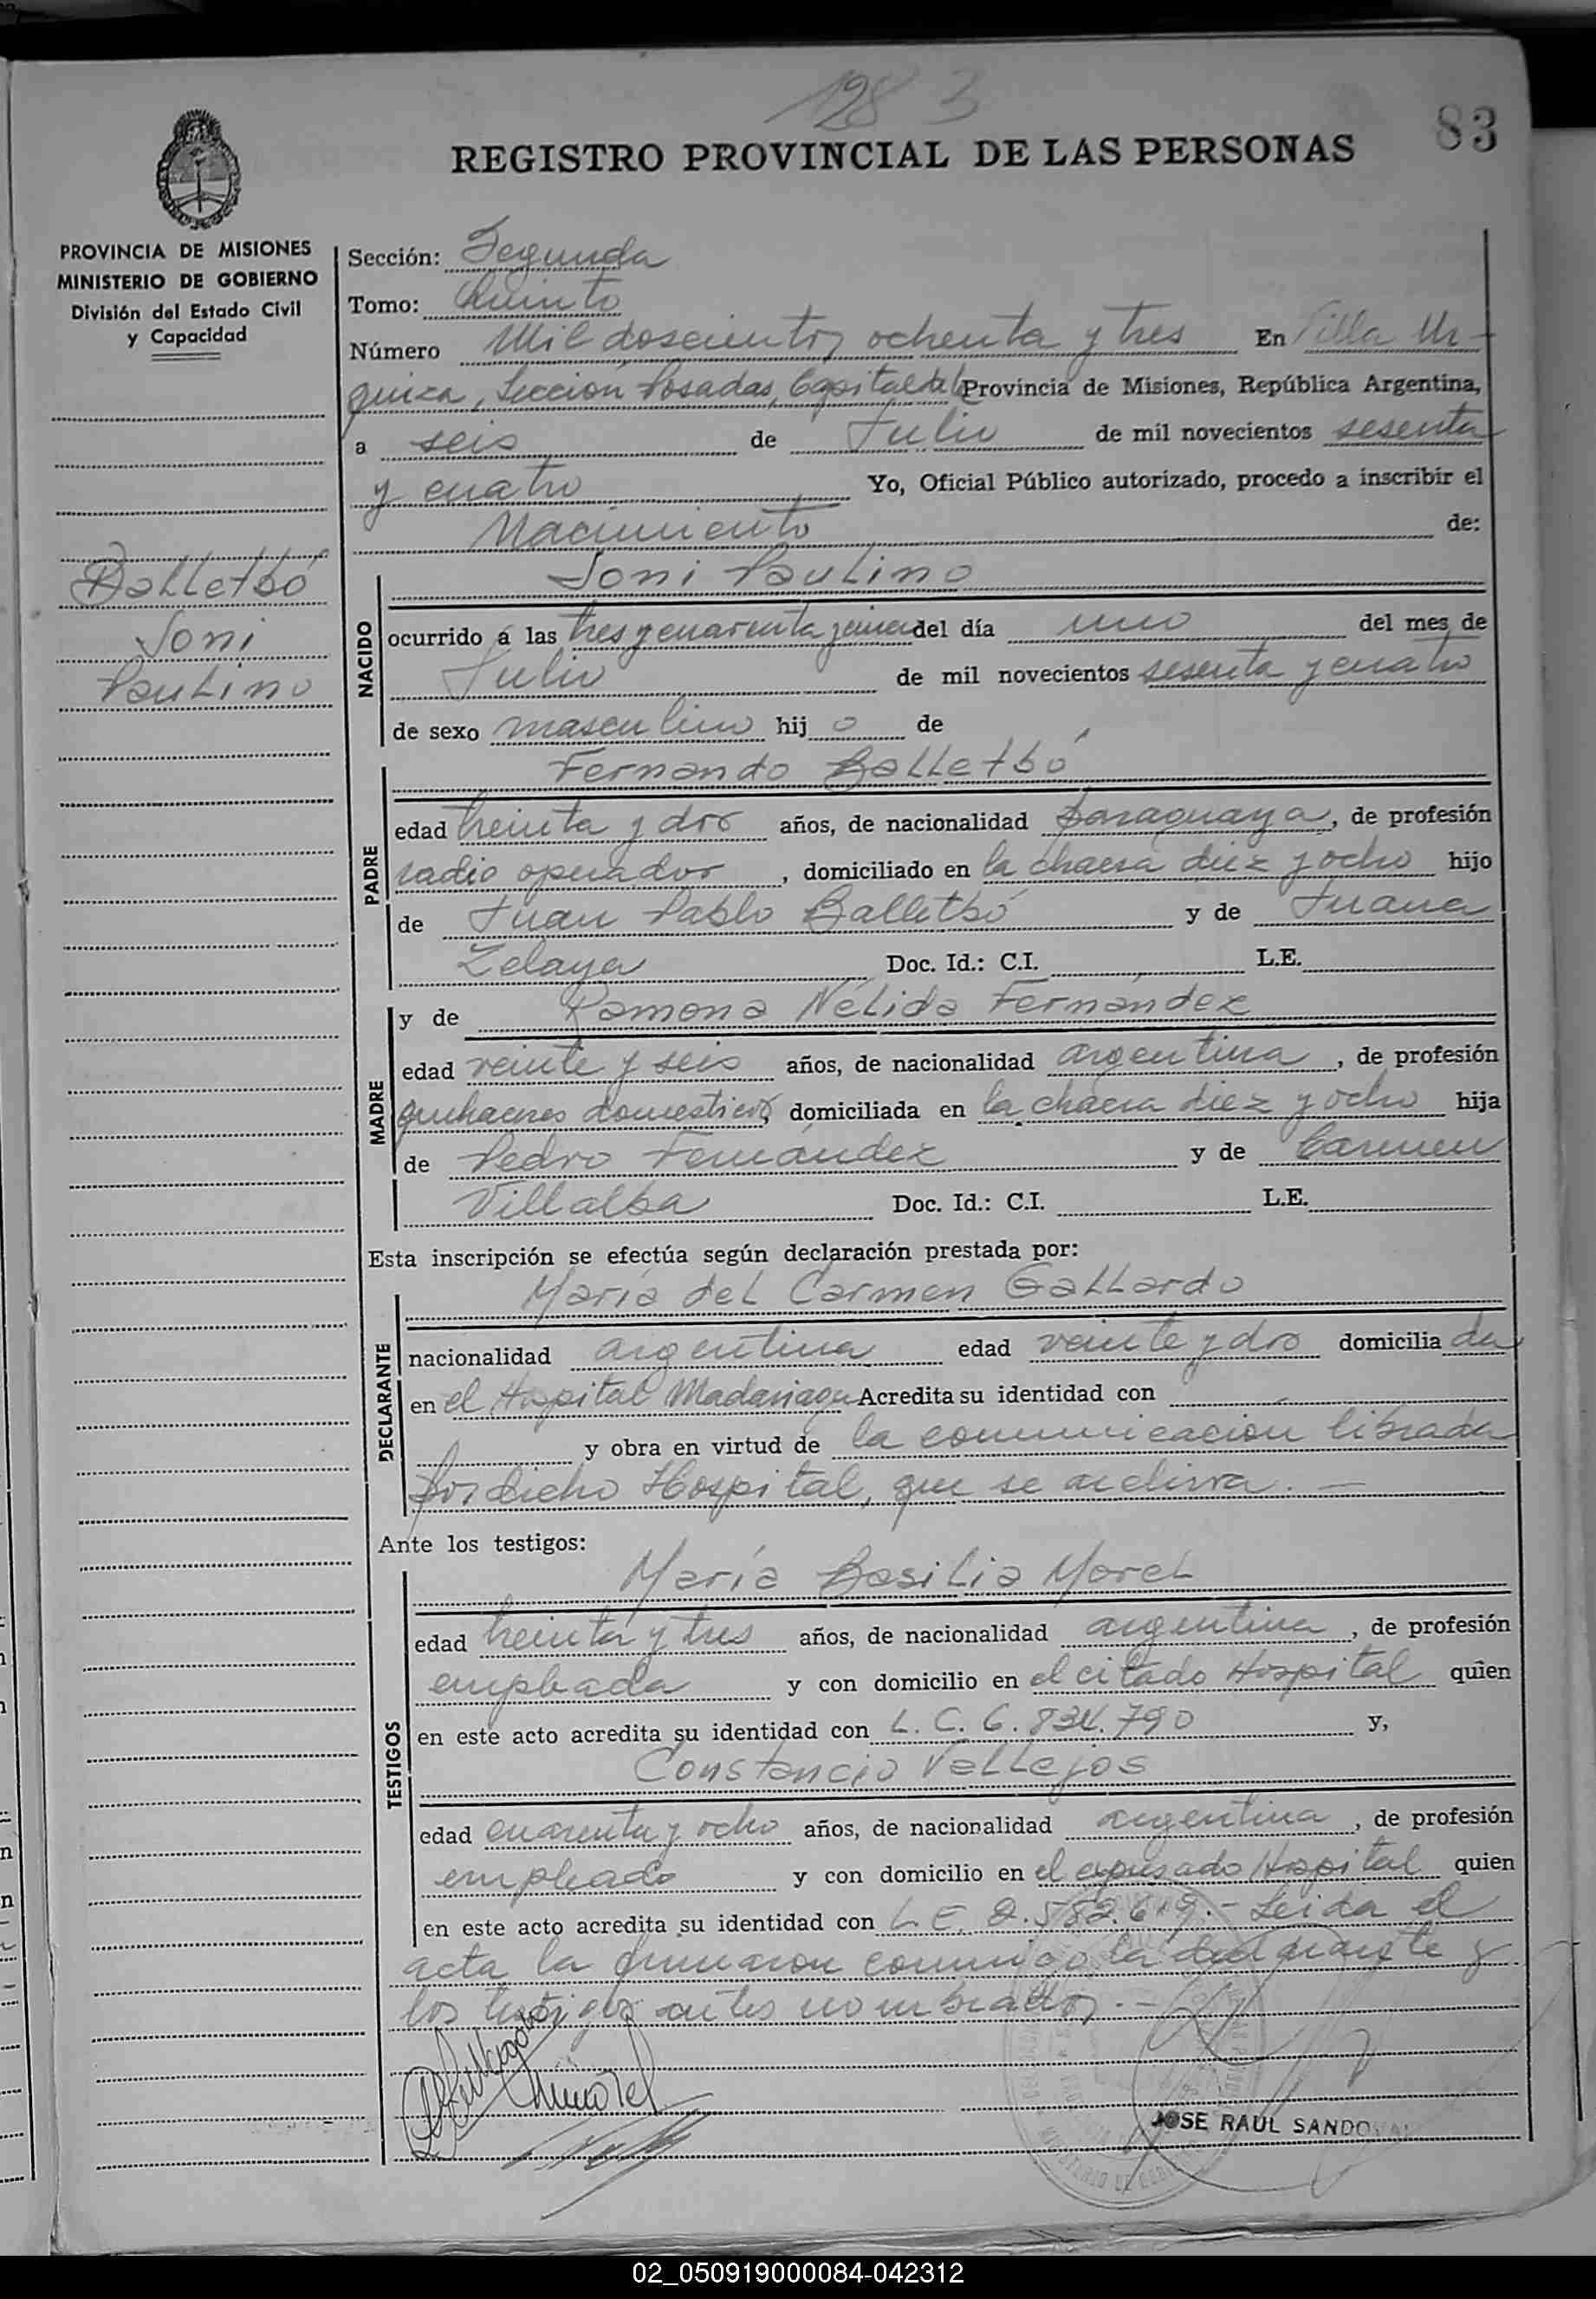 1283
83
REGISTRO PROVINCIAL DE LAS PERSONAS
PROVINCIA DE MISIONES
MINISTERIO DE GOBIERNO
División del Estado Civil
y Capacidad
Balletbó
Soni
Paulino
Sección: Segunda
Tomo: Quinto
Número Mil doscientos ochenta y tres En Villa Ur-
quiza, Sección Posadas, Capital de la Provincia de Misiones, República Argentina,
a seis de Julio de mil novecientos sesenta
y cuatro Yo, Oficial Público autorizado, procedo a inscribir el
Nacimiento de:
NACIDO
Soni Paulino
ocurrido a las tres y cuarenta y cinco del día uno del mes de
Julio de mil novecientos sesenta y cuatro
de sexo masculino hijo de
PADRE
Fernando Balletbó
edad treinta y dos años, de nacionalidad paraguaya, de profesión
radio operador, domiciliado en la chacra diez y ocho hijo
de Juan Pablo Balletbó y de Juana
Zelaya Doc. Id.: C.I. L.E.
MADRE
y de Ramona Nélida Fernández
edad veinte y seis años, de nacionalidad argentina, de profesión
quehaceres domesticos, domiciliada en la chacra diez y ocho hija
de Pedro Fernández y de Carmen
Villalba Doc. Id.: C.I. L.E.
Esta inscripción se efectúa según declaración prestada por:
DECLARANTE
María del Carmen Gallardo
nacionalidad argentina edad veinte y dos domicilia da
en el Hospital Madariaga Acredita su identidad con
y obra en virtud de la comunicacion librada
por dicho Hospital, que se archiva. —
Ante los testigos:
TESTIGOS
María Basilia Morel
edad treinta y tres años, de nacionalidad argentina, de profesión
empleada y con domicilio en el citado Hospital quien
en este acto acredita su identidad con L. C. 6.834.790 y,
Constancio Vallejos
edad cuarenta y ocho años, de nacionalidad argentina, de profesión
empleado y con domicilio en el expresado Hospital quien
en este acto acredita su identidad con L. E. 2.582.619.- Leida el
acta la firmaron conmigo la declarante y
los testigos antes nombrados. -
JOSE RAUL SANDOVAL
02_050919000084-042312